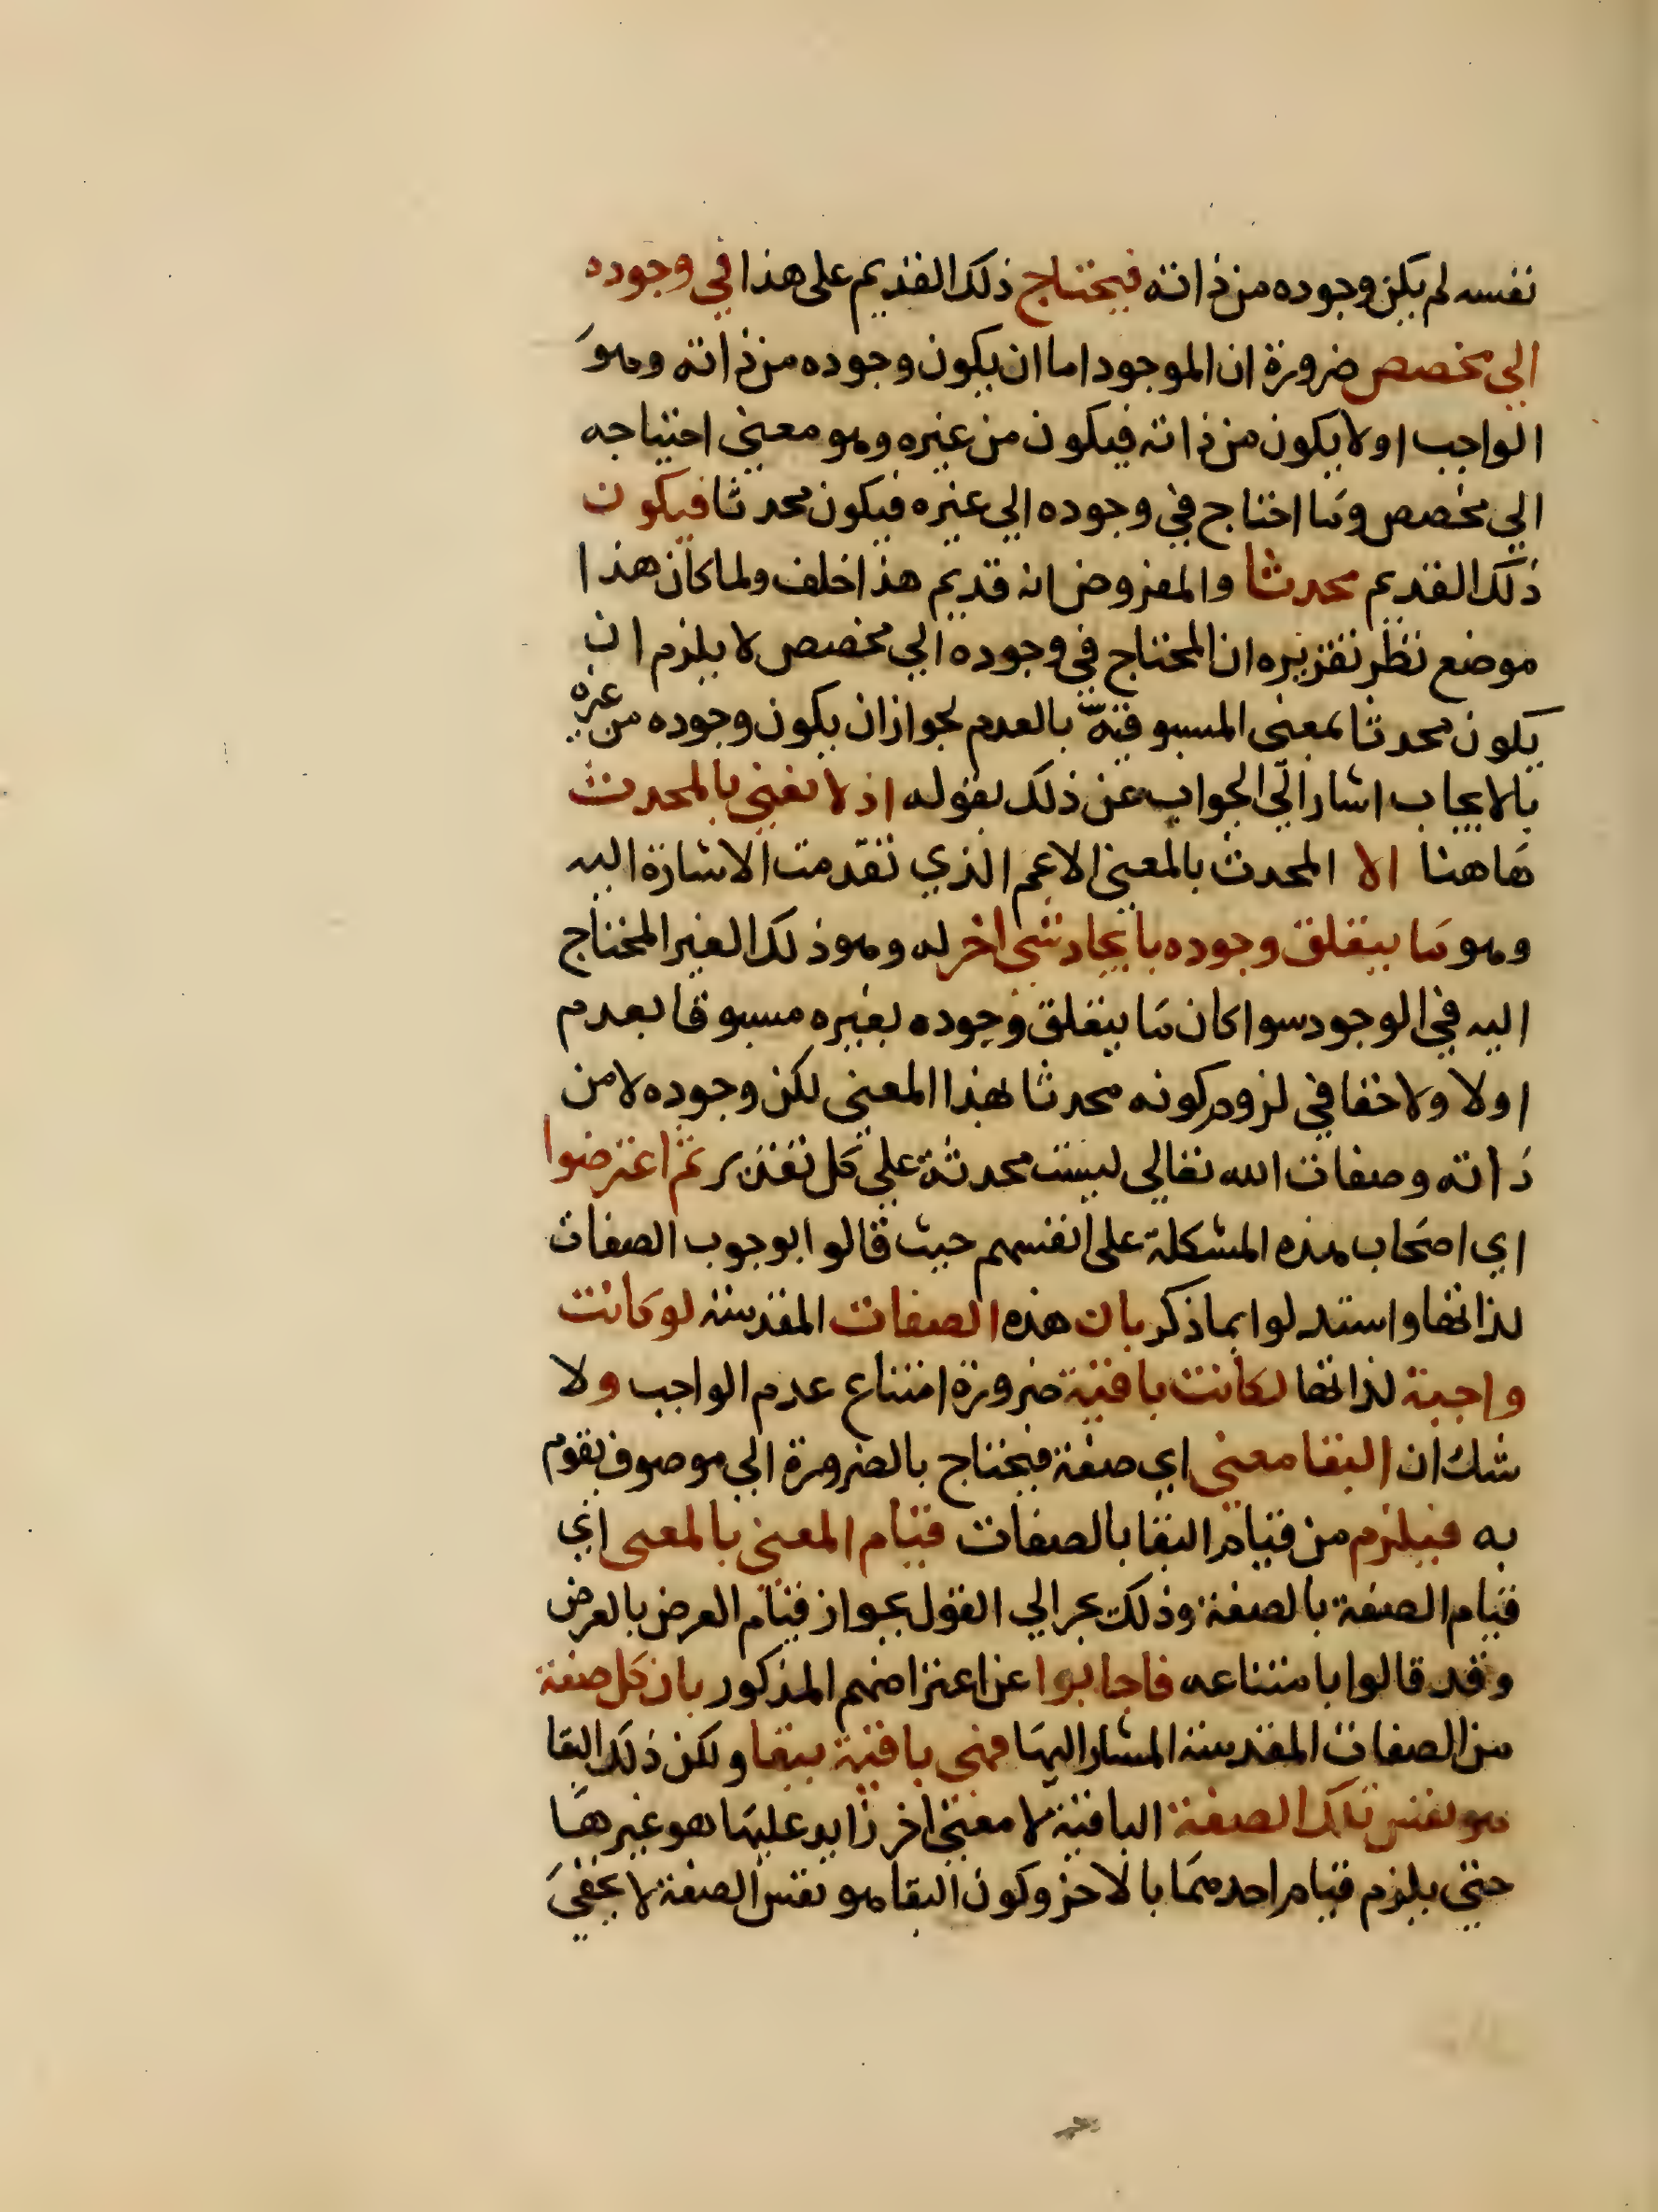 نفسه لم يكن وجوده من ذاته فيحتاج ذلك القديم على هذا في وجوده
الي مخصص ضرورة ان الموجود اما ان يكون وجوده من ذاته وهو
الواجب او لا يكون من ذاته فيكون من غيره وهو معني احتياجه
الي مخصص وما احتاج في وجوده الي غيره فيكون محدثا فيكون
ذلك القديم محدثا والمفروض انه قديم هذا خلف ولما كان هذا
موضع نظر تقريره ان المحتاج في وجوده الي مخصص لا يلزم ان
يكون محدثا بمعنى المسبوقية بالعدم لجواز ان يكون وجوده من غيره
بالايجاب اشار الي الجواب عن ذلك بقوله اذ لا نعني بالمحدث
هاهنا الا المحدث بالمعني الاعم الذي تقدمت الاشارة اليه
وهو ما يتعلق وجوده بايجاد شي اخر له وهو ذلك الغير المحتاج
اليه في الوجود سوا كان ما يتعلق وجوده بغيره مسبوقا بعدم
او لا ولا خفا في لزوم كونه محدثا بهذا المعني لكن وجوده لا من
ذاته وصفات الله تعالي ليست محدثة علي كل تقدير ثم اعترضوا
اي اصحاب هذه المشكلة على انفسهم حيث قالوا بوجوب الصفات
لذاتها واستدلوا بما ذكر بان هذه الصفات المقدسة لو كانت
واجبة لذاتها لكانت باقية ضرورة امتناع عدم الواجب ولا
شك ان البقا معنى اي صفة فيحتاج بالضرورة الي موصوف يقوم
به فيلزم من قيام البقا بالصفات قيام المعني بالمعنى اي
قيام الصفة بالصفة وذلك يجر الي القول بجواز قيام العرض بالعرض
وقد قالوا بامتناعه فاجابوا عن اعتراضهم المذكور بان كل صفة
من الصفات المقدسة المشار اليها فهي باقية ببقا ولكن ذلك البقا
هو نفس تلك الصفة الباقية لا معني اخر زايد عليها هو غيرها
حتي يلزم قيام احدهما بالاخر وكون البقا هو نفس الصفة لا يخفي